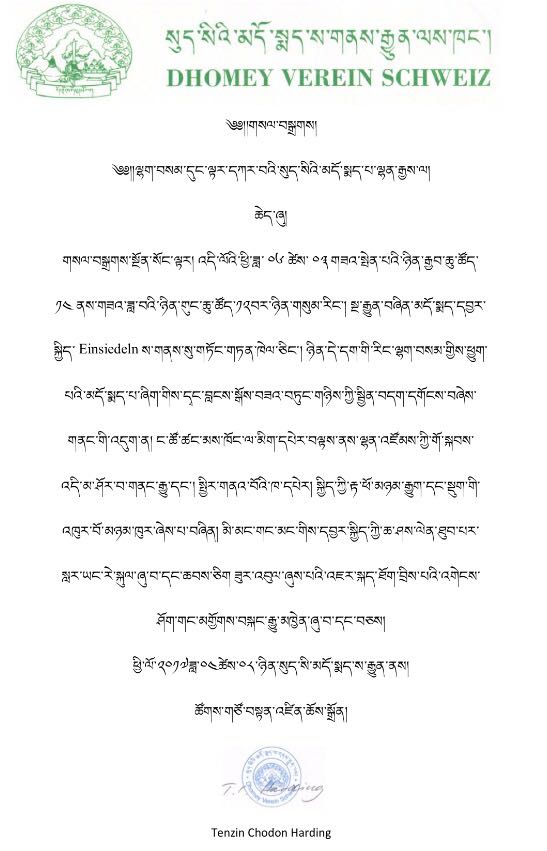 སུད་སིའི་མདོ་སྨད་ས་གནས་རྒྱུན་ལས་ཁང་།
DHOMEY VEREIN SCHWEIZ
༄༅།།གསལ་བསྒྲགས།
༄༅།།ལྷག་བསམ་དུང་ལྟར་དཀར་བའི་སུད་སིའི་མདོ་སྨད་པ་ལྷན་རྒྱས་ལ།
ཆེད་ཞུ།
གསལ་བསྒྲགས་སྔོན་སོང་ལྟར། འདི་ལོའི་ཕྱི་ཟླ་ ༠༦ ཚེས་ ༠༣ གཟའ་སྤེན་པའི་ཉིན་རྒྱབ་ཆུ་ཚོད་
༡༤ ནས་གཟའ་ཟླ་བའི་ཉིན་གུང་ཆུ་ཚོད་༡༢བར་ཉིན་གསུམ་རིང་། སྔ་རྒྱུན་བཞིན་མདོ་སྨད་དབྱར་
སྐྱིད་ Einsiedeln ས་གནས་སུ་གཏོང་གཏན་ཁེལ་ཅིང་། ཉིན་དེ་དག་གི་རིང་ལྷག་བསམ་གྱིས་ཕྱུག་
པའི་མདོ་སྨད་པ་ཞིག་གིས་དྭང་བླངས་སྒོས་བཟའ་བཏུང་གཉིས་ཀྱི་སྦྱིན་བདག་དགོངས་བཞེས་
གནང་གི་འདུག་ན། ང་ཚོ་ཚང་མས་ཁོང་ལ་མིག་དཔེར་བལྟས་ནས་ལྷན་འཛོམས་ཀྱི་གོ་སྐབས་
འདི་མ་ཤོར་བ་གནང་རྒྱུ་དང་། སྤྱིར་གནའ་བོའི་ཁ་དཔེར། སྐྱིད་ཀྱི་རྟ་ཕོ་མཉམ་རྒྱུག་དང་སྡུག་གི་
འཁུར་པོ་མཉམ་ཁུར་ཞེས་པ་བཞིན། མི་མང་གང་མང་གིས་དབྱར་སྐྱིད་ཀྱི་ཆ་ཤས་ལེན་ཐུབ་པར་
སླར་ཡང་རེ་སྐུལ་ཞུ་བ་དང་ཆབས་ཅིག ཟུར་འབུལ་ཞུས་པའི་འཇར་སྐད་ཐོག་བྲིས་པའི་འགེངས་
ཤོག་གང་མགྱོགས་བསྐང་རྒྱུ་མཁྱེན་ཞུ་བ་དང་བཅས།
ཕྱི་ལོ་༢༠༡༧ཟླ་༠༤ཚེས་༠༨ཉིན་སུད་སི་མདོ་སྨད་ས་རྒྱུན་ནས།
ཚོགས་གཙོ་བསྟན་འཛིན་ཆོས་སྒྲོན།
T. C Harding
Dhomey Verein Schweiz
Tenzin Chodon Harding